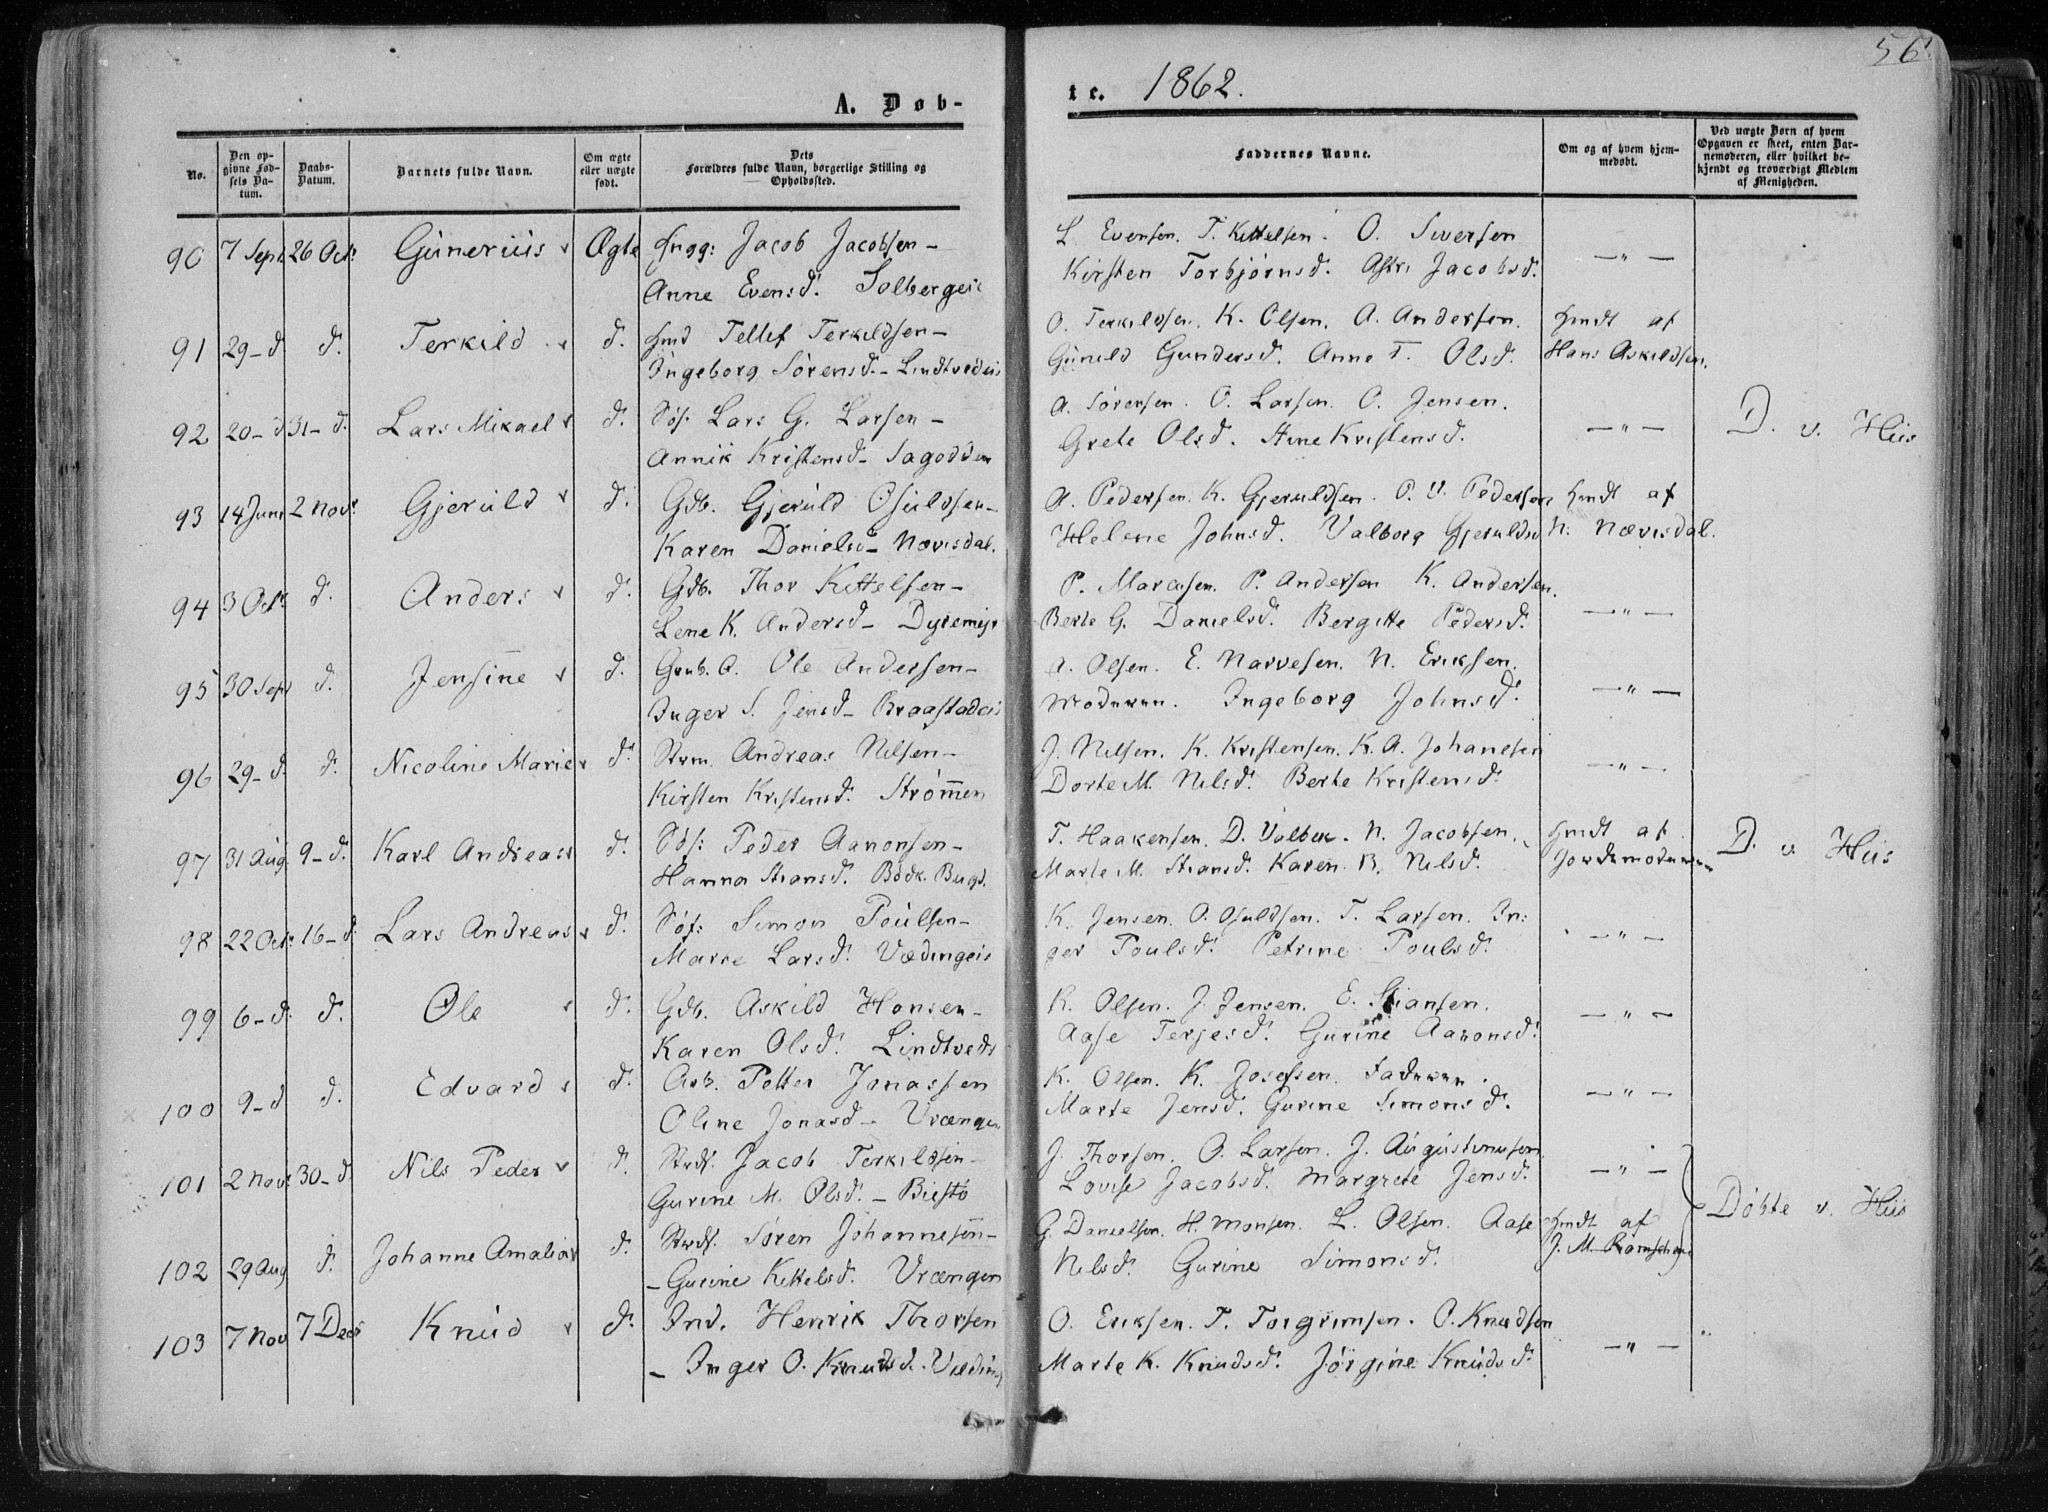 56
A. Døb-
te. 1862.
No.
Den opgivne Fødsels Datum.
Daabs-Datum.
Barnets fulde Navn.
Om ægte eller uægte født.
Dets Forældres fulde Navn, borgerlige Stilling og Opholdssted.
Faddernes Navne.
Om og af hvem hjemmedøbt.
Ved uægte Børn af hvem Opgaven er skeet, enten Barnemoderen, eller hvilket bekjendt og troværdigt Medlem af Menigheden.
90 7 Sept. 26 Oct. Gunerius Ægte Jacob Jacobsen - L. Evensen. T. Kittelsen. O. Siversen
Anne Evensd. Solbergei Kirsten Torbjørnsd. Astri Jacobsd. -"-
91 29-d d. Terkild d. Tellef Terkildsen - O. Terkildsen. K. Olsen. A. Andersen. Hmdt af
Ingeborg Sørensd. - Lindtvedeie Gunild Gundersd. Anne T. Olsd. Hans Askildsen.
92 20-d 31-d. Lars Mikael d. Søf. Lars G. Larsen - A. Sørensen. O. Larsen. O. Jensen.
Annik Kristensd - Sagodden Grete Olsd. Stine Kristensd. -"- D. v. Hiis
93 14 Juni 2 Nov. Gjeruld d. Gdb. Gjeruld Osuldsen - A. Pedersen. K. Gjeruldsen. O. V. Pedersen Hmdt af
Karen Danielsd - Nævisdal. Helene Johnsd. Valborg Gjeruldsd N. Nævisdal.
94 3 Oct. d. Anders d. Gdb. Thor Kittelsen - P. Marcusen. P. Andersen K. Andersen.
Lene K. Andersd - Dyremyr Berte G. Danielsd. Bergitte Pedersd. -"-
95 30 Sept d. Jensine d. Grub. A. Ole Andersen - A. Olsen. E. Narvesen. N. Eriksen.
Inger S. Jensd - Braastadeie Moderen. Ingeborg Johnsd. -"-
96 29-d. d. Nicoline Marie d. Strm. Andreas Nilsen - J. Nilsen. K. Kristensen. K. A. Johanesen
Kirsten Kristensd. Strømmen Dorte M. Nilsd. Berte Kristensd. -"-
97 31 Aug 9-d. Karl Andreas d. Søf. Peder Aanonsen - T. Haakensen. D. N. Jacobsen. Hmdt af
Hanna Stiansd. Marte M. Stiansd. Karen B. Nilsd. Jordemoderen D. v. Hiis
98 22 Oct. 16-d Lars Andreas d. Søf. Simon Poulsen - K. Jensen. O. Osuldsen. T. Larsen. In:
Marie Larsd. Vædingeie ger Poulsd. Petrine Poulsd. -"-
99 6-d. d. Ole d. Gdb. Askild Hansen - K. Olsen. J. Jensen. E. Stiansen.
Karen Olsd. Lindtvedt Aase Terjesd. Gurine Aanonsd. -"-
100 9-d d. Edvard d. Arb. Petter Jonassen K. Olsen. K. Josefsen. Faderen.
Oline Jonasd - Vrængen Marte Jensd. Gurine Simonsd. -"-
101 2 Nov. 30-d Nils Peder d. Strdf. Jacob Terkildsen - J. Thorsen. O. Larsen. J. Augustinusen
Gurine M. Olsd. - Biestø Lovise Jacobsd. Margrete Jensd. -"-
Døbte v. Hiis
102 29 Aug d. Johanne Amalia d. Strdf. Søren Johannesen - G. Danielsen. H. Monsen. L. Olsen. Aase Hmdt af
- Gurine Kittelsd. Vrængen Nilsd. Gurine Simonsd. J. M.
103 7 Nov 7 Decb Knud d. Ind. Henrik Thorsen O. Eriksen. T. Torgrimsen. O. Knudsen
- Inger O. Knudsd. Væding Marte K. Knudsd. Jørgine Knudsd. -"-